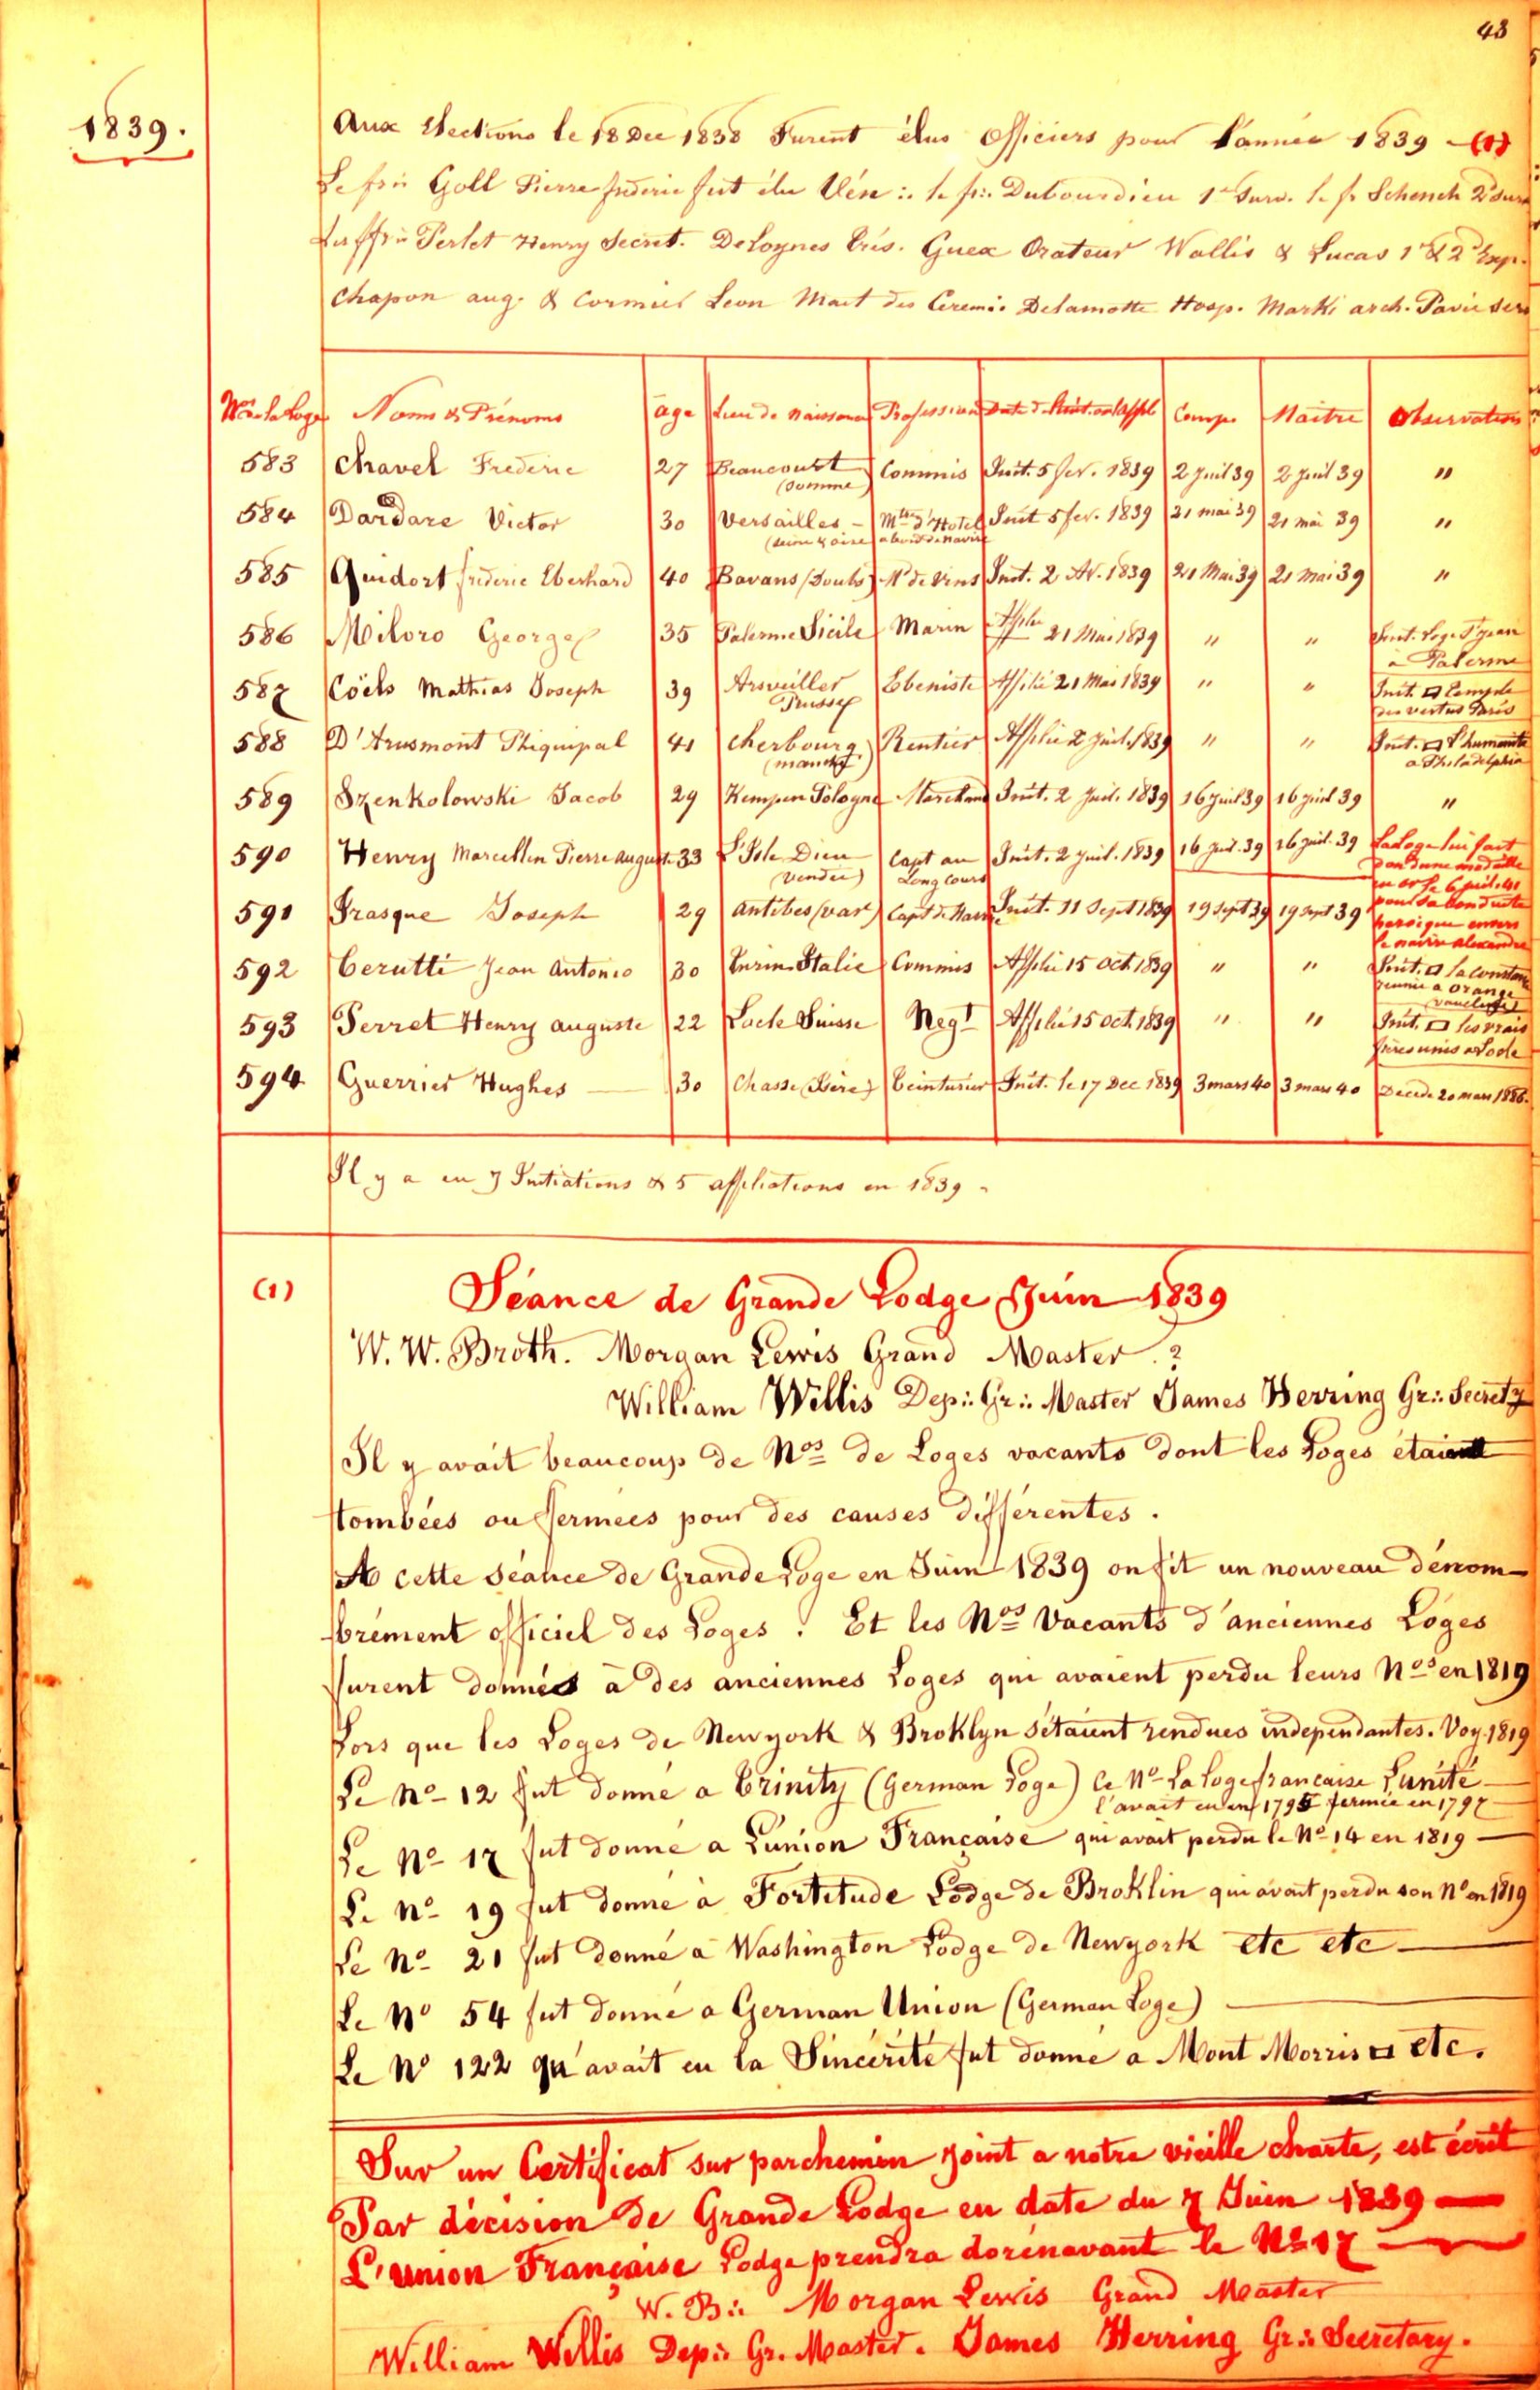 43
1839.
Aux Elections le 18 Dec 1838 Furent élus Officiers pour l'année 1839 — (1)
Le fr∴ Goll Pierre frederic fut élu Vén∴ le fr∴ Dubourdieu 1er Surv. le fr Schenck 2d Surv
Les ff∴ Perlet Henry Secret. Deloynes Trés. Guex Orateur Wallis & Lucas 1er & 2d Exp.
Chapon aug. & Cormier Leon Mait des Cerem∴ Delamotte Hosp. Marki arch. Pavie
Nos de la Loge Noms & Prénoms age Lieu de naissance Profession Date d'Init. ou d'affil Comp. Maitre Observations
583 Chavel Frederic 27 Beaucourt (Somme) Commis Init. 5 fev. 1839 2 Juil 39 2 Juil 39 "
584 Dardare Victor 30 Versailles — (Seine & oise) Mtre d'Hotel a bord de navire Init 5 fev. 1839 21 mai 39 21 mai 39 "
585 Quidort frederic Eberhard 40 Bavans (Doubs) Md de Vins Init. 2 Av. 1839 21 Mai 39 21 Mai 39 "
586 Miloro George 35 Palerme Sicile Marin Affilié 21 Mai 1839 " " Init. Loge St Jean à Palerme
587 Cöels Mathias Joseph 39 Arsveiller Prusse Ebeniste Affilié 21 Mai 1839 " " Init. ▭ Temple des vertus Paris
588 D'Arusmont Phiquipal 41 Cherbourg (manche) Rentier Affilié 2 Juil. 1839 " " Init. ▭ l'humanité a Philadelphia
589 Szenkolowski Jacob 29 Kempen Pologne Marchand Init. 2 Juil. 1839 16 Juil 39 16 Juil 39 "
590 Henry Marcellin Pierre auguste 33 L'Isle Dieu (Vendée) Capt au Long Cours Init. 2 Juil. 1839 16 Juil. 39 16 Juil. 39 La Loge lui fait don d'une medaille en or le 6 Juil. 41 pour sa conduite heroique envers le navire Alexandre
591 Frasque Joseph 29 Antibes (var) Capt de Navire Init. 11 Sept 1839 19 Sept 39 19 Sept 39
592 Cerutti Jean Antonio 30 Turin Italie Commis Affilié 15 Oct 1839 " " Init. ▭ la constance reunie a Orange (Vaucluse)
593 Perret Henry auguste 22 Locle Suisse Negt Affilié 15 Oct. 1839 " " Init. ▭ les vrais frères unis a Locle
594 Guerrier Hughes — 30 Chasse (Isère) Teinturier Init. le 17 Dec 1839 3 mars 40 3 mars 40 Décédé 20 mars 1886.
Il y a eu 7 Initiations & 5 affiliations en 1839 -
(1) Séance de Grande Lodge Juin 1839
W. W. Broth. Morgan Lewis Grand Master. ?
William Willis Dep∴ Gr∴ Master James Herring Gr∴ Secrety
Il y avait beaucoup de Nos de Loges vacants dont les Loges étaient
tombées ou fermées pour des causes différentes.
A cette séance de Grande Loge en Juin 1839 on fit un nouveau dénom-
brément officiel des Loges. Et les Nos Vacants d'anciennes Loges
furent donnés a des anciennes Loges qui avaient perdu leurs Nos en 1819
Lors que les Loges de Newyork & Broklyn s'étaient rendues independantes. Voy. 1819
Le No 12 fut donné a Trinity (German Loge) Ce No La Loge francaise L'unité —
l'avait eu en 1795 fermée en 1797 —
Le No 17 fut donné a L'union Française qui avait perdu le No 14 en 1819 —
Le No 19 fut donné à Fortitude Lodge de Broklin qui avait perdu son No en 1819
Le No 21 fut donné à Washington Lodge de Newyork etc etc —
Le No 54 fut donné a German Union (German Loge) —
Le No 122 qu'avait eu la Sincérité fut donné a Mont Morris ▭ etc.
Sur un Certificat sur parchemin joint a notre vieille charte, est écrit
Par décision de Grande Lodge en date du 7 Juin 1839 —
L'union Française Lodge prendra dorénavant le No 17 —
W. B∴ Morgan Lewis Grand Master
William Willis Dep∴ Gr. Master. James Herring Gr∴ Secretary.